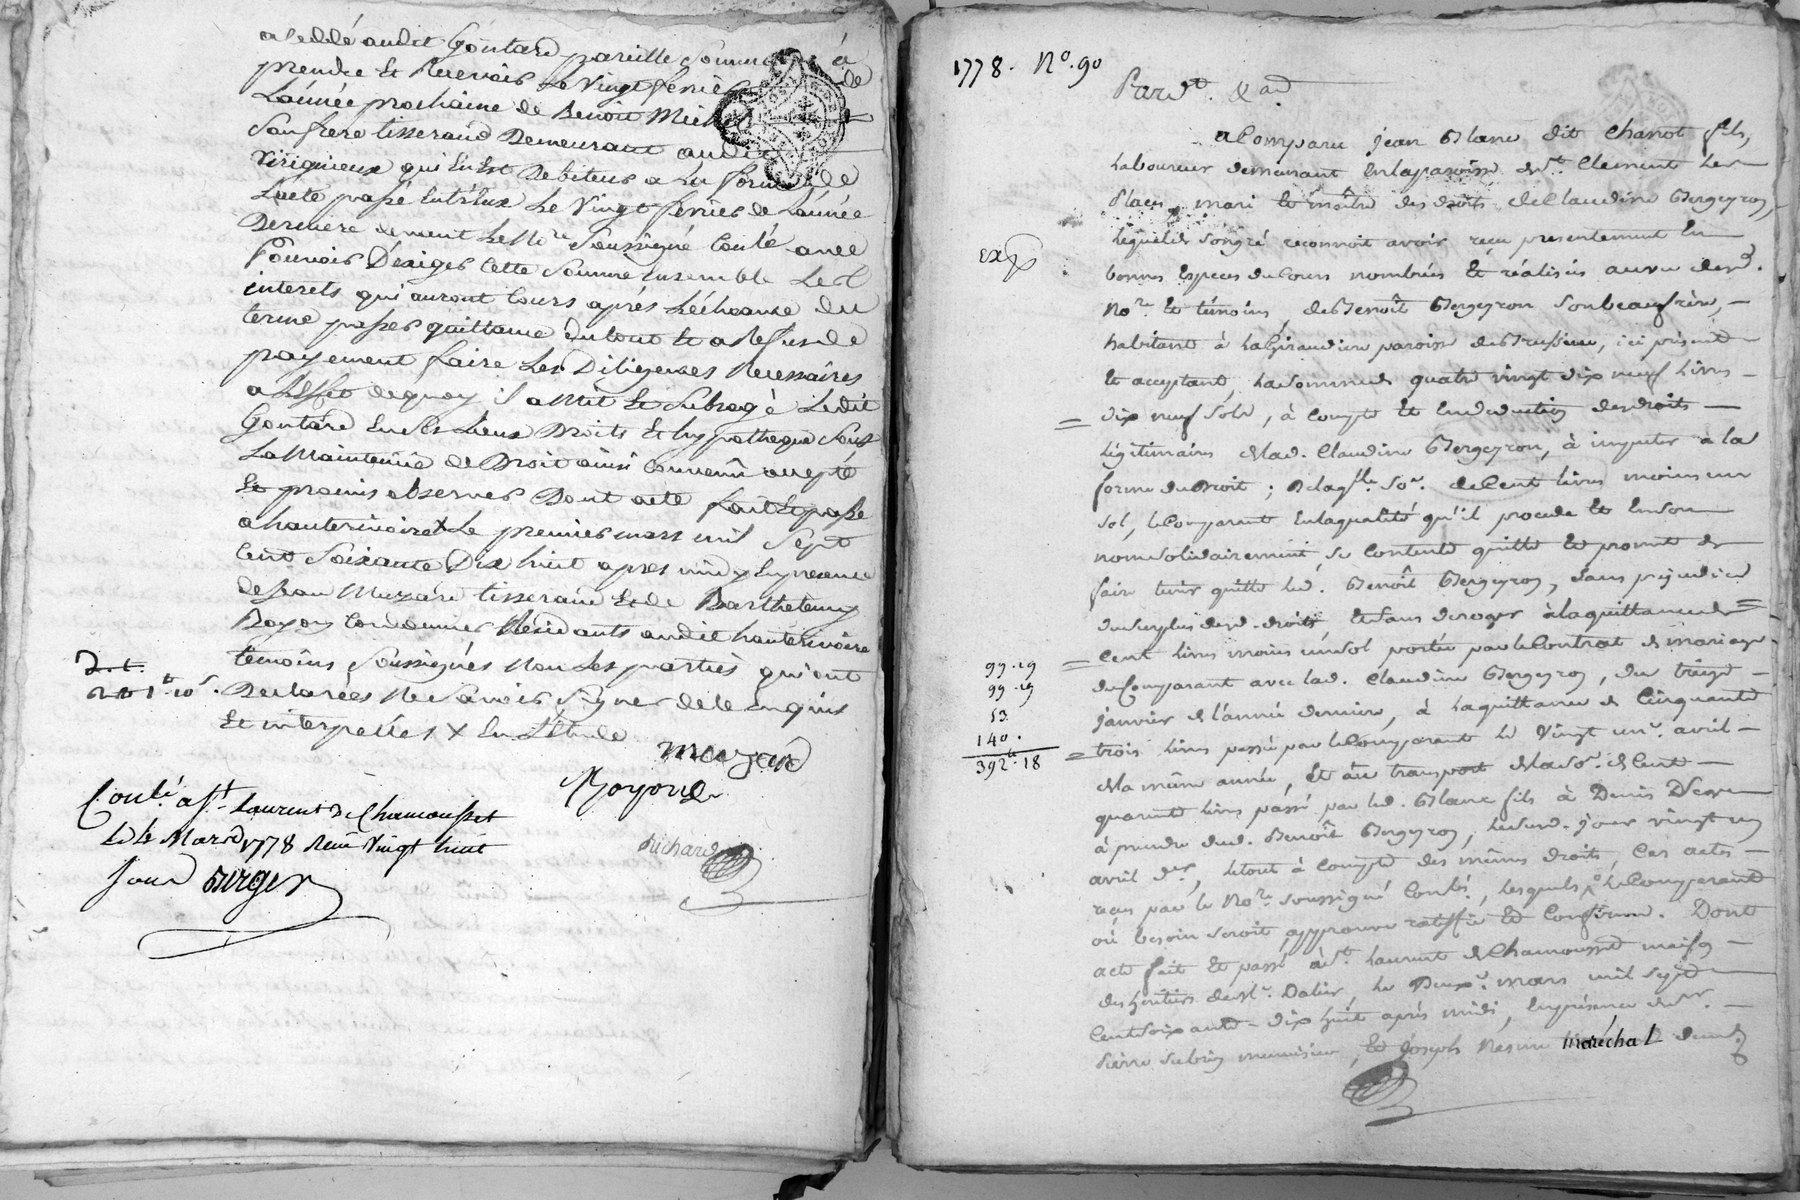 a ceddé audit Goutard pareille somme à
prendre Et Recevoir Le Vingt fevrier de
L'année prochaine de Benoit Michel
son frere tisserand Demeurant audit
Virignieux qui En Est Debiteur a La forme de
L'acte passé Entr'Eux Le Vingt fevrier de L'année
Derniere devant Le No.re Soussigné Conlé avec
Pouvoir D'exiger Cette Somme Ensemble Les
interets qui auront Cours après L'écheance du
terme passer quittance du tout Et a Refus de
payement faire Les Diligences Necessaires
a L'Effet de quoy il a Mit Et Subrogé Ledit
Goutard En Ses Lieux Droits Et hypotheque Sous
La Maintenüe de Droit ainsi Convenû accepté
Et promis observer Dont acte fait Et passé
a hauterivoire x Le premier mars mil Sept
Cent Soixante Dix huit apres midy En presence
de Jean Muzard tisserand Et de Barthelemy
Boyon Cordonnier Residants audit hauterivoire
temoins Soussignés Non Les parties qui ont
Declarées Ne Savoir Signer de ce Enquis
Et interpellés x En L'Etude
muzard
Boyond
Richard
Conlé a St. Laurent De Chamousset
Le 4 Mars 1778 Reçu Vingt huit
Sous Burger
1778. No. 90
Pard.t &ad
a Comparu jean Blanc dit Charrot fils,
Laboureur demeurant En la paroisse de St. Clement Les
Places, mari Et maître des droits de Claudine Bergeron,
Lequel de Son gré reconnoit avoir reçu presentement En
Exp
bonnes Especes du Cours nombrées Et réalisées au vu dud.
No.re Et témoins, de Benoît Bergeron Son beaufrère,
habitant à La Giraudiere paroisse de Brussieu, ici présent
Et acceptant, La Somme de quatre vingt dix neuf livres
dix neuf Sols, à Compte Et En deduction des droits
Légitimaires de lad. Claudine Bergeron, à imputer à la
forme du Droit; De laq.lle So.e de Cent livres moins un
Sol, le Comparant En la qualité qu'il procede Et En Son
nom Solidairement, Se Contente quitte Et promet de
faire tenir quitte led. Benoît Bergeron, Sans prejudice
du Surplus desd. droits Et Sans deroger à la quittance de
Cent livres moins un Sol portée par le Contrat de mariage
du Comparant avec lad. Claudine Bergeron, du treize
janvier de l'année derniere, à la quittance de Cinquante
trois livres passée par le Comparant Le Vingt un.e avril
de la même année, Et au transport de la So.e de Cent
quarante livres passé par led. Blanc fils à Denis
à prendre dud. Benoît Bergeron, Led. jour vingt un
avril der, Letout à Compte des mêmes droits, Ces actes
reçus par le No.re Soussigné Conlés, lesquels le Comparant
où besoin Seroit, approuve ratiffie Et Confirme. Dont
acte fait Et passé à St. Laurent de Chamousset maison
des heritiers de Mr. Dalier, Le Deux.e mars mil Sept
Cent Soixante-dix huit après midi, En présence de Sr.
Pierre menuisier, Et Joseph maréchal dud
99.19
99.19
53.
140.
392.18